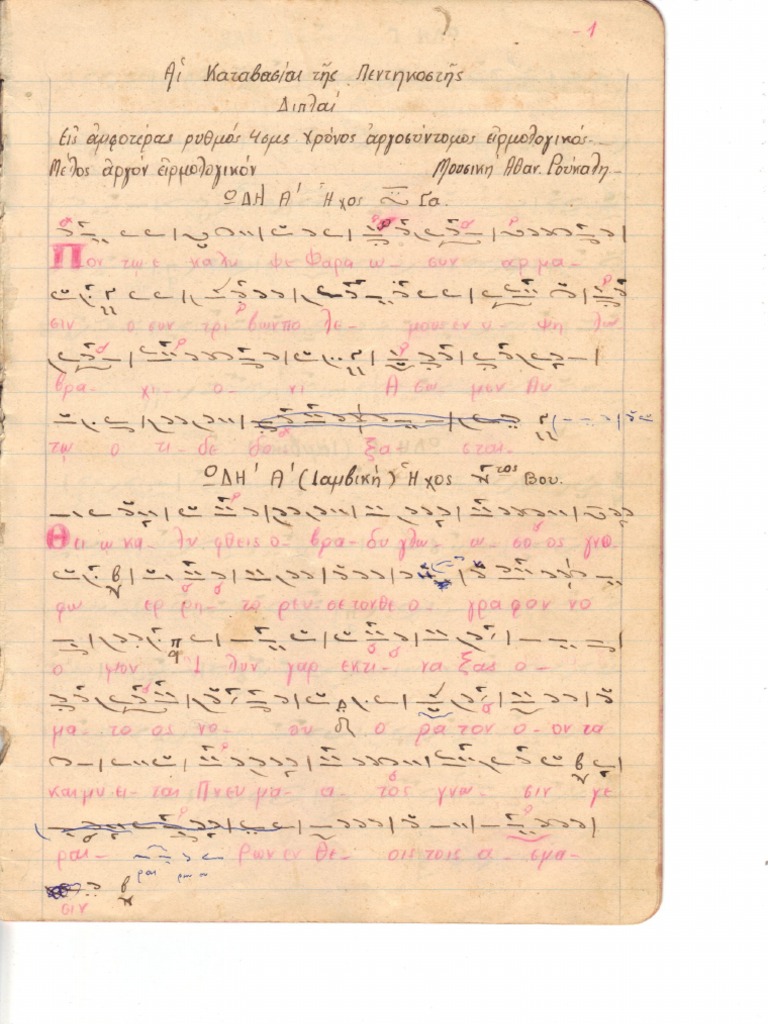 1
Αἱ Καταβασίαι τῆς Πεντηκοστῆς
Διπλαί
Εἰς ἀμφοτέρας ρυθμός 4σμς χρόνος ἀργοσύντομος εἱρμολογικός
Μέλος ἀργόν εἱρμολογικόν Μουσική Αθαν. Ρούκαλη
ΩΔΗ Α' Ἦχος Γα.
Πον τω ε κα λυ ψε Φαρα ω- συν αρ μα-
σιν ο συν τρι βων πο λε- μους εν υ- ψη λω
βρα- χι- ο- νι Α σω- μεν Αυ
τω ο τι- δε δο- ξα σται-
ΩΔΗ' Α' (Ιαμβική) Ἦχος τος Βου.
Θει ω κα- λυ φθεις ο- βρα- δυ γλω- ω- σσο- ος γνο-
φω ερ ρη- το ρευ σε τον θε ο- γρα φον νο
ο μον Ι λυν γαρ εκ τι- να ξας ο-
μα- το ος νο- ου ο ρα τον ο- ον τα
και μυ ει- ται Πνευ μα- α- τος γνω- σιν γε
ραι- ρων εν θε- οις τοις α- σμα-
ραι ρων
σιν